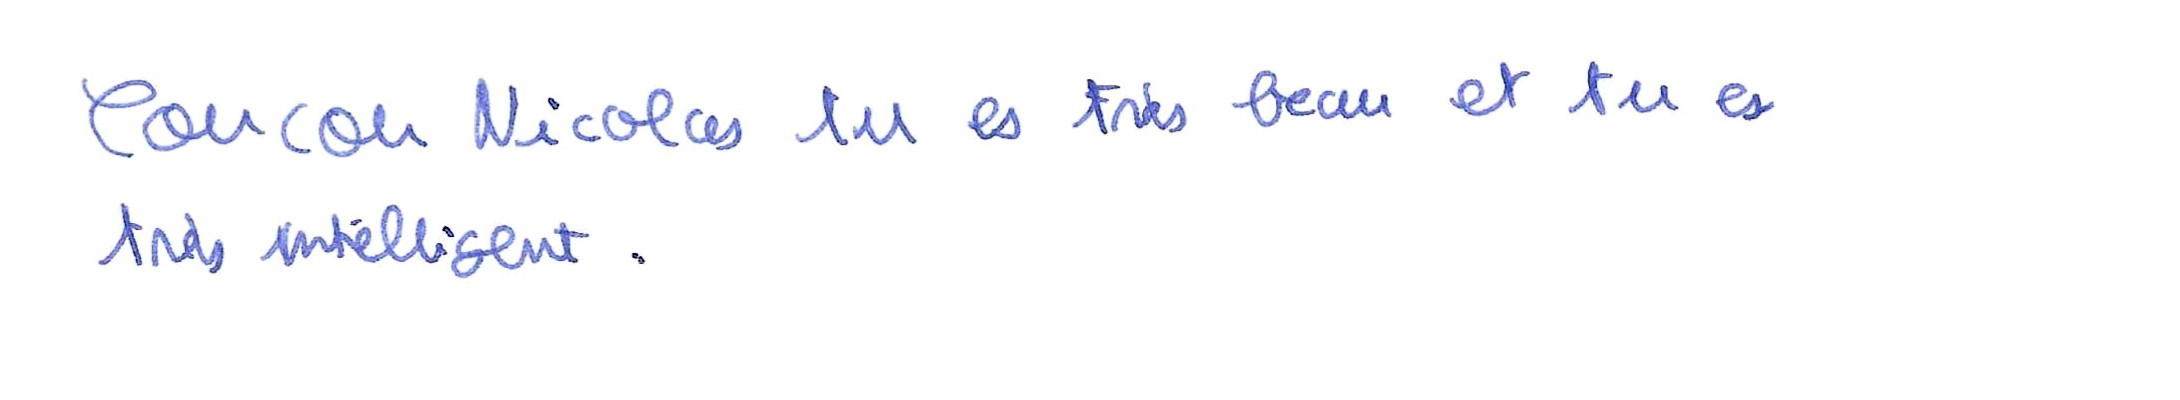 Coucou Nicolas tu es très beau et tu es
très intelligent.